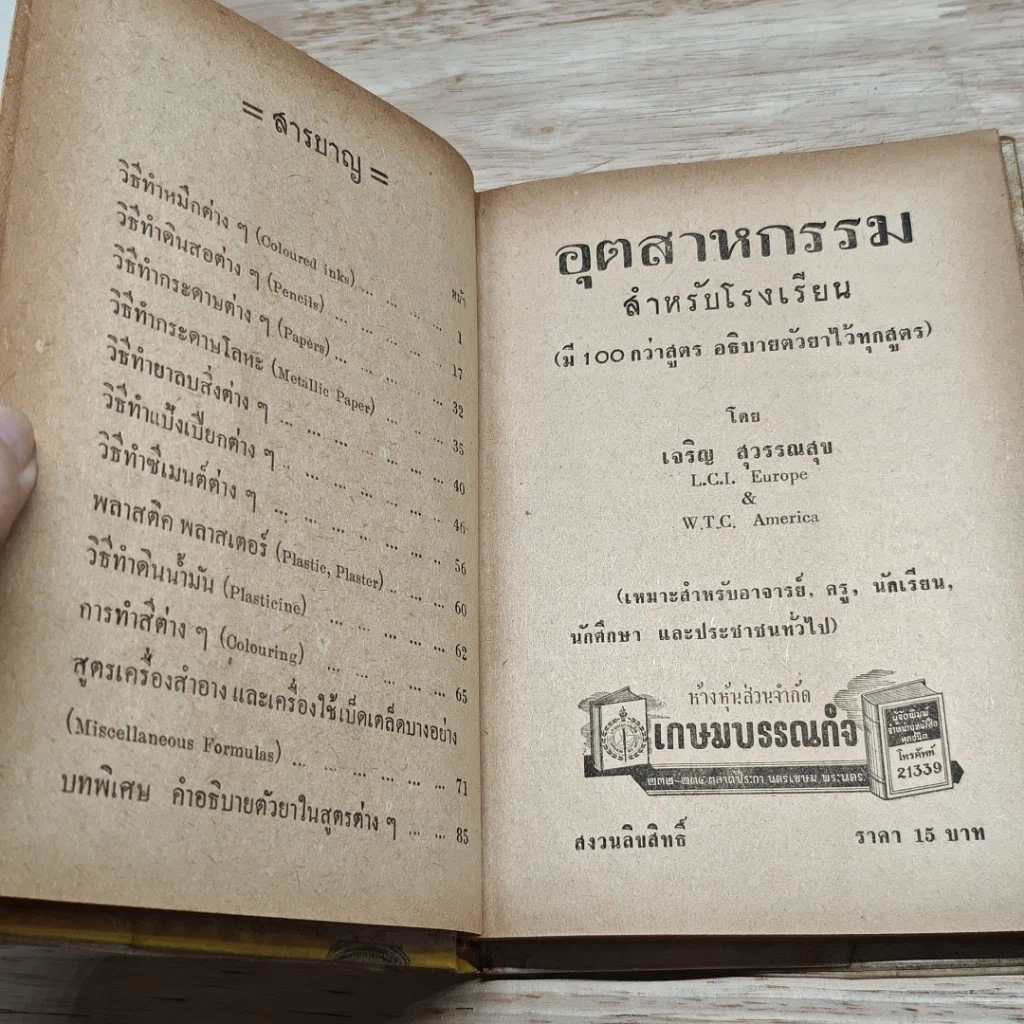 = สารบาญ =
หน้า
วิธีทำหมึกต่าง ๆ (Coloured inks) ... ... ... ... 1
วิธีทำดินสอต่าง ๆ (Pencils) ... ... ... ... 17
วิธีทำกระดาษต่าง ๆ (Papers) ... ... ... ... 32
วิธีทำกระดาษโลหะ (Metallic Paper) ... ... ... 35
วิธีทำยาลบสิ่งต่าง ๆ ... ... ... ... ... 40
วิธีทำแป้งเปียกต่าง ๆ ... ... ... ... ... 46
วิธีทำซีเมนต์ต่าง ๆ ... ... ... ... ... 56
พลาสติค พลาสเตอร์ (Plastic, Plaster) ... ... ... 60
วิธีทำดินน้ำมัน (Plasticine) ... ... ... ... 62
การทำสีต่าง ๆ (Colouring) ... ... ... ... ... 65
สูตรเครื่องสำอาง และเครื่องใช้เบ็ดเตล็ดบางอย่าง
(Miscellaneous Formulas) ... ... ... ... ... 71
บทพิเศษ คำอธิบายตัวยาในสูตรต่าง ๆ ... ... 85
อุตสาหกรรม
สำหรับโรงเรียน
(มี 100 กว่าสูตร อธิบายตัวยาไว้ทุกสูตร)
โดย
เจริญ สุวรรณสุข
L.C.I. Europe
&
W.T.C. America
(เหมาะสำหรับอาจารย์, ครู, นักเรียน,
นักศึกษา และประชาชนทั่วไป)
ห้างหุ้นส่วนจำกัด
เกษมบรรณกิจ
๒๓๒-๒๓๔ ตลาดประกา นครเขษม พระนคร
ผู้จัดพิมพ์
จำหน่ายหนังสือ
ทุกชนิด
โทรศัพท์
21339
สงวนลิขสิทธิ์ ราคา 15 บาท